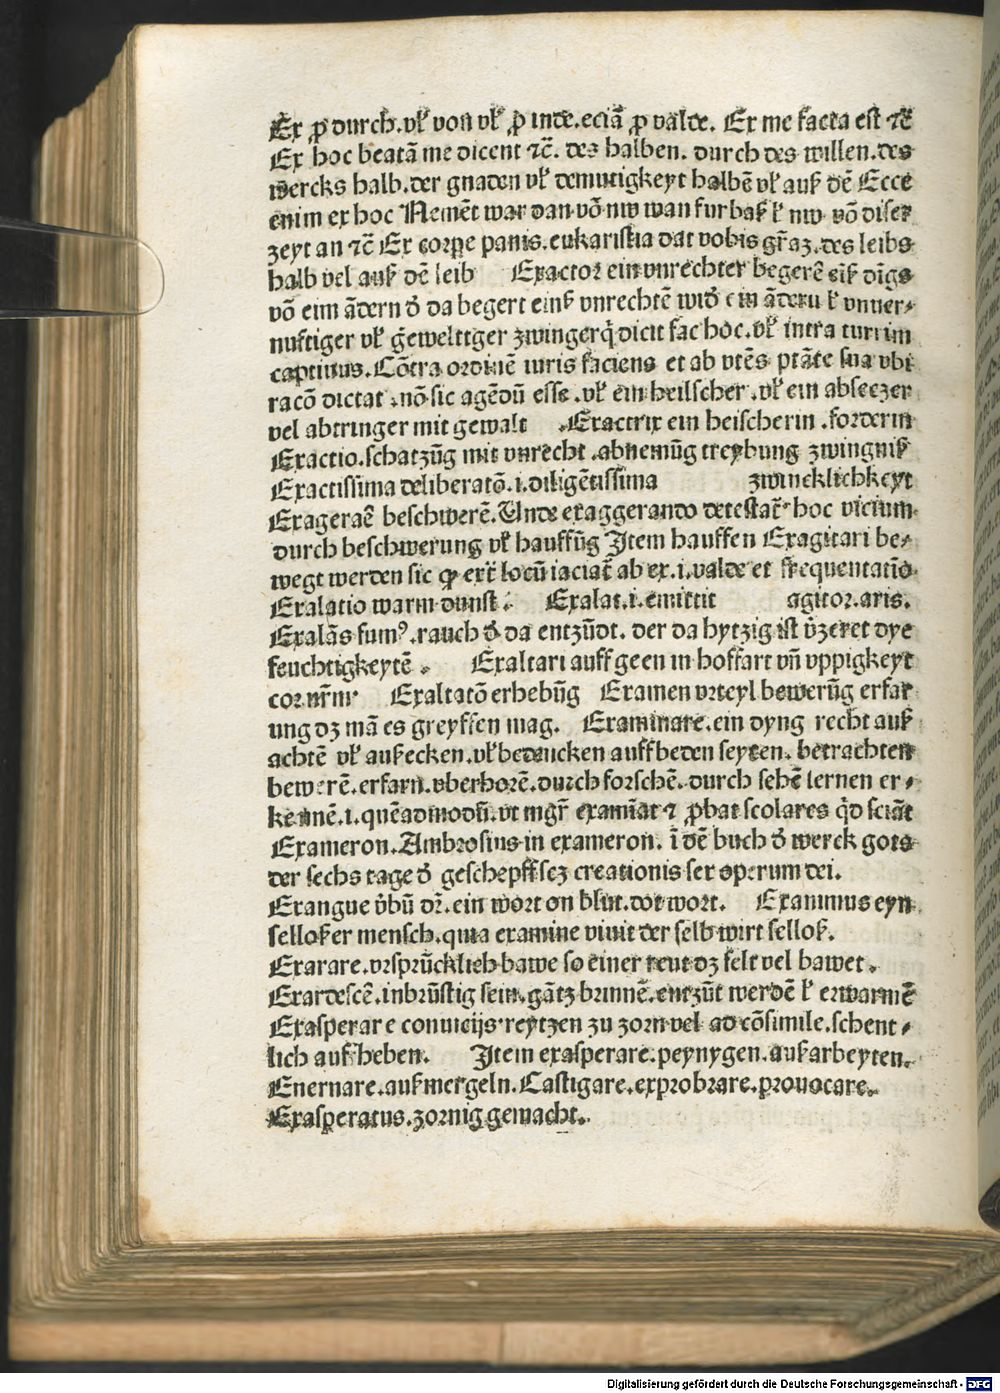 Ex ꝓ durch. vł von vł ꝓ inde. eciā ꝓ valde. Ex me facta est ⁊c̄
Ex hoc beatā me dicent ⁊c̄. des halben. durch des willen. des
wercks halb. der gnaden vł demutigkeyt halbē vł auß dē Ecce
enim ex hoc Nemēt war dan vō nw wan furbaß ł nw vō diser
zeyt an ⁊c̄ Ex corpe panis. eukaristia dat vobis gr̄az. des leibs
halb vel auß dē leib Exactor ein vnrechter begerē eiß dīgs
vō eim ādern ð da begert einß vnrechtē wið ein ādern ł vnuer⸗
nuftiger vł gewelttger zwinger q̄ dicit fac hoc. vł intra turrim
captiuus. Cōtra ordinē iuris faciens et ab vtēs ptāte sua vbi
racō dictat. nō sic agēdū esse. vł ein heilscher. vł ein abseezer
vel abtringer mit gewalt .Exactrix ein heischerin. forderin
Exactio. schatzūg mit vnrecht. abnemūg treybung zwingniß
Exactissima deliberatō. i. diligētissima zwincklichkeyt
Exageraē beschwerē. Unde exaggerando detestat̄ hoc vicium
durch beschwerung vł hauffūg Item hauffen Exagitari be⸗
wegt werden sic ꝙ ext̄ locū iaciat̄ ab ex. i. valde et frequentatīo
Exalatio warm dunst. Exalat. i. emittit agitor. aris.
Exalās fumꝰ. rauch ð da entzūdt. der da hytzig ist v̄zeret dye
feuchtigkeytē. Exaltari auff geen in hoffart vn̄ vppigkeyt
cor. nr̄m Exaltatō erhebūg Examen vrteyl bewerūg erfar
ung dz mā es greyffen mag. Examinare. ein dyng recht auß
achtē vł außecken. vł bedrucken auff beden seyten. betrachten
bewerē. erfarn. vberhorē. durch forschē. durch sehē lernen er⸗
kennē. i. quēadmodū. vt mgr̄ examīat ⁊ ꝓbat scolares q̄d sciāt
Exameron. Ambrosius in exameron. ī dē buch ð werck gots
der sechs tage ð geschepff sez creationis sex operum dei.
Exangue v̄bū dr̄. ein wort on blut. dot wort. Exanimus eyn
selloßer mensch. quia examine viuit der selb wirtselloß.
Exarare. vrsprūcklich bawe so einer reut dz felt vel bawet.
Exardescē. inbrūstig sein. gātz brinnē. entzūt werdē ł erwarmē
Exasperare conuicijs reytzen zu zorn vel ad cōsimile. schent⸗
lich auf heben. Item exasperare. peynygen. außarbeyten.
Enernare. außmergeln. Castigare. exprobrare. prouocare.
Exasperatus. zornig gemacht.
Digitalisierung gefördert durch die Deutsche Forschungsgemeinschaft - DFG